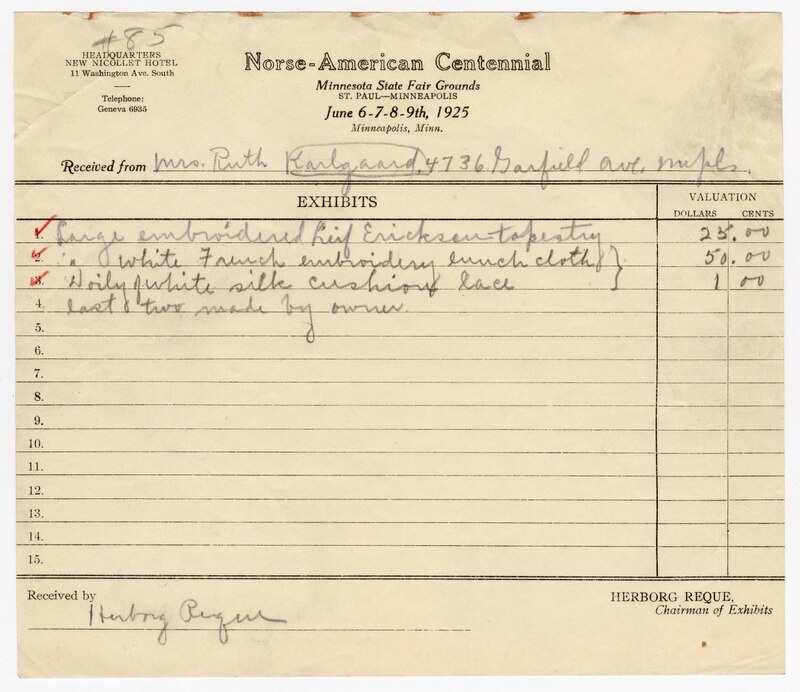 #85
HEADQUARTERS
NEW NICOLLET HOTEL
11 Washington Ave. South
Telephone:
Geneva 6935
Norse-American Centennial
Minnesota State Fair Grounds
ST. PAUL—MINNEAPOLIS
June 6-7-8-9th, 1925
Minneapolis, Minn.
Received from Mrs. Ruth Karlgaard, 4736 Garfield Ave. Mpls.
EXHIBITS
VALUATION
DOLLARS CENTS
1. Large embroidered Leif Ericksen tapestry 25.00
2. " white French embroidery lunch cloth } 50.00
3. Doily of white silk cushion lace } 1 00
4. last two made by owner.
5.
6.
7.
8.
9.
10.
11.
12.
13.
14.
15.
Received by Herborg Reque
HERBORG REQUE,
Chairman of Exhibits